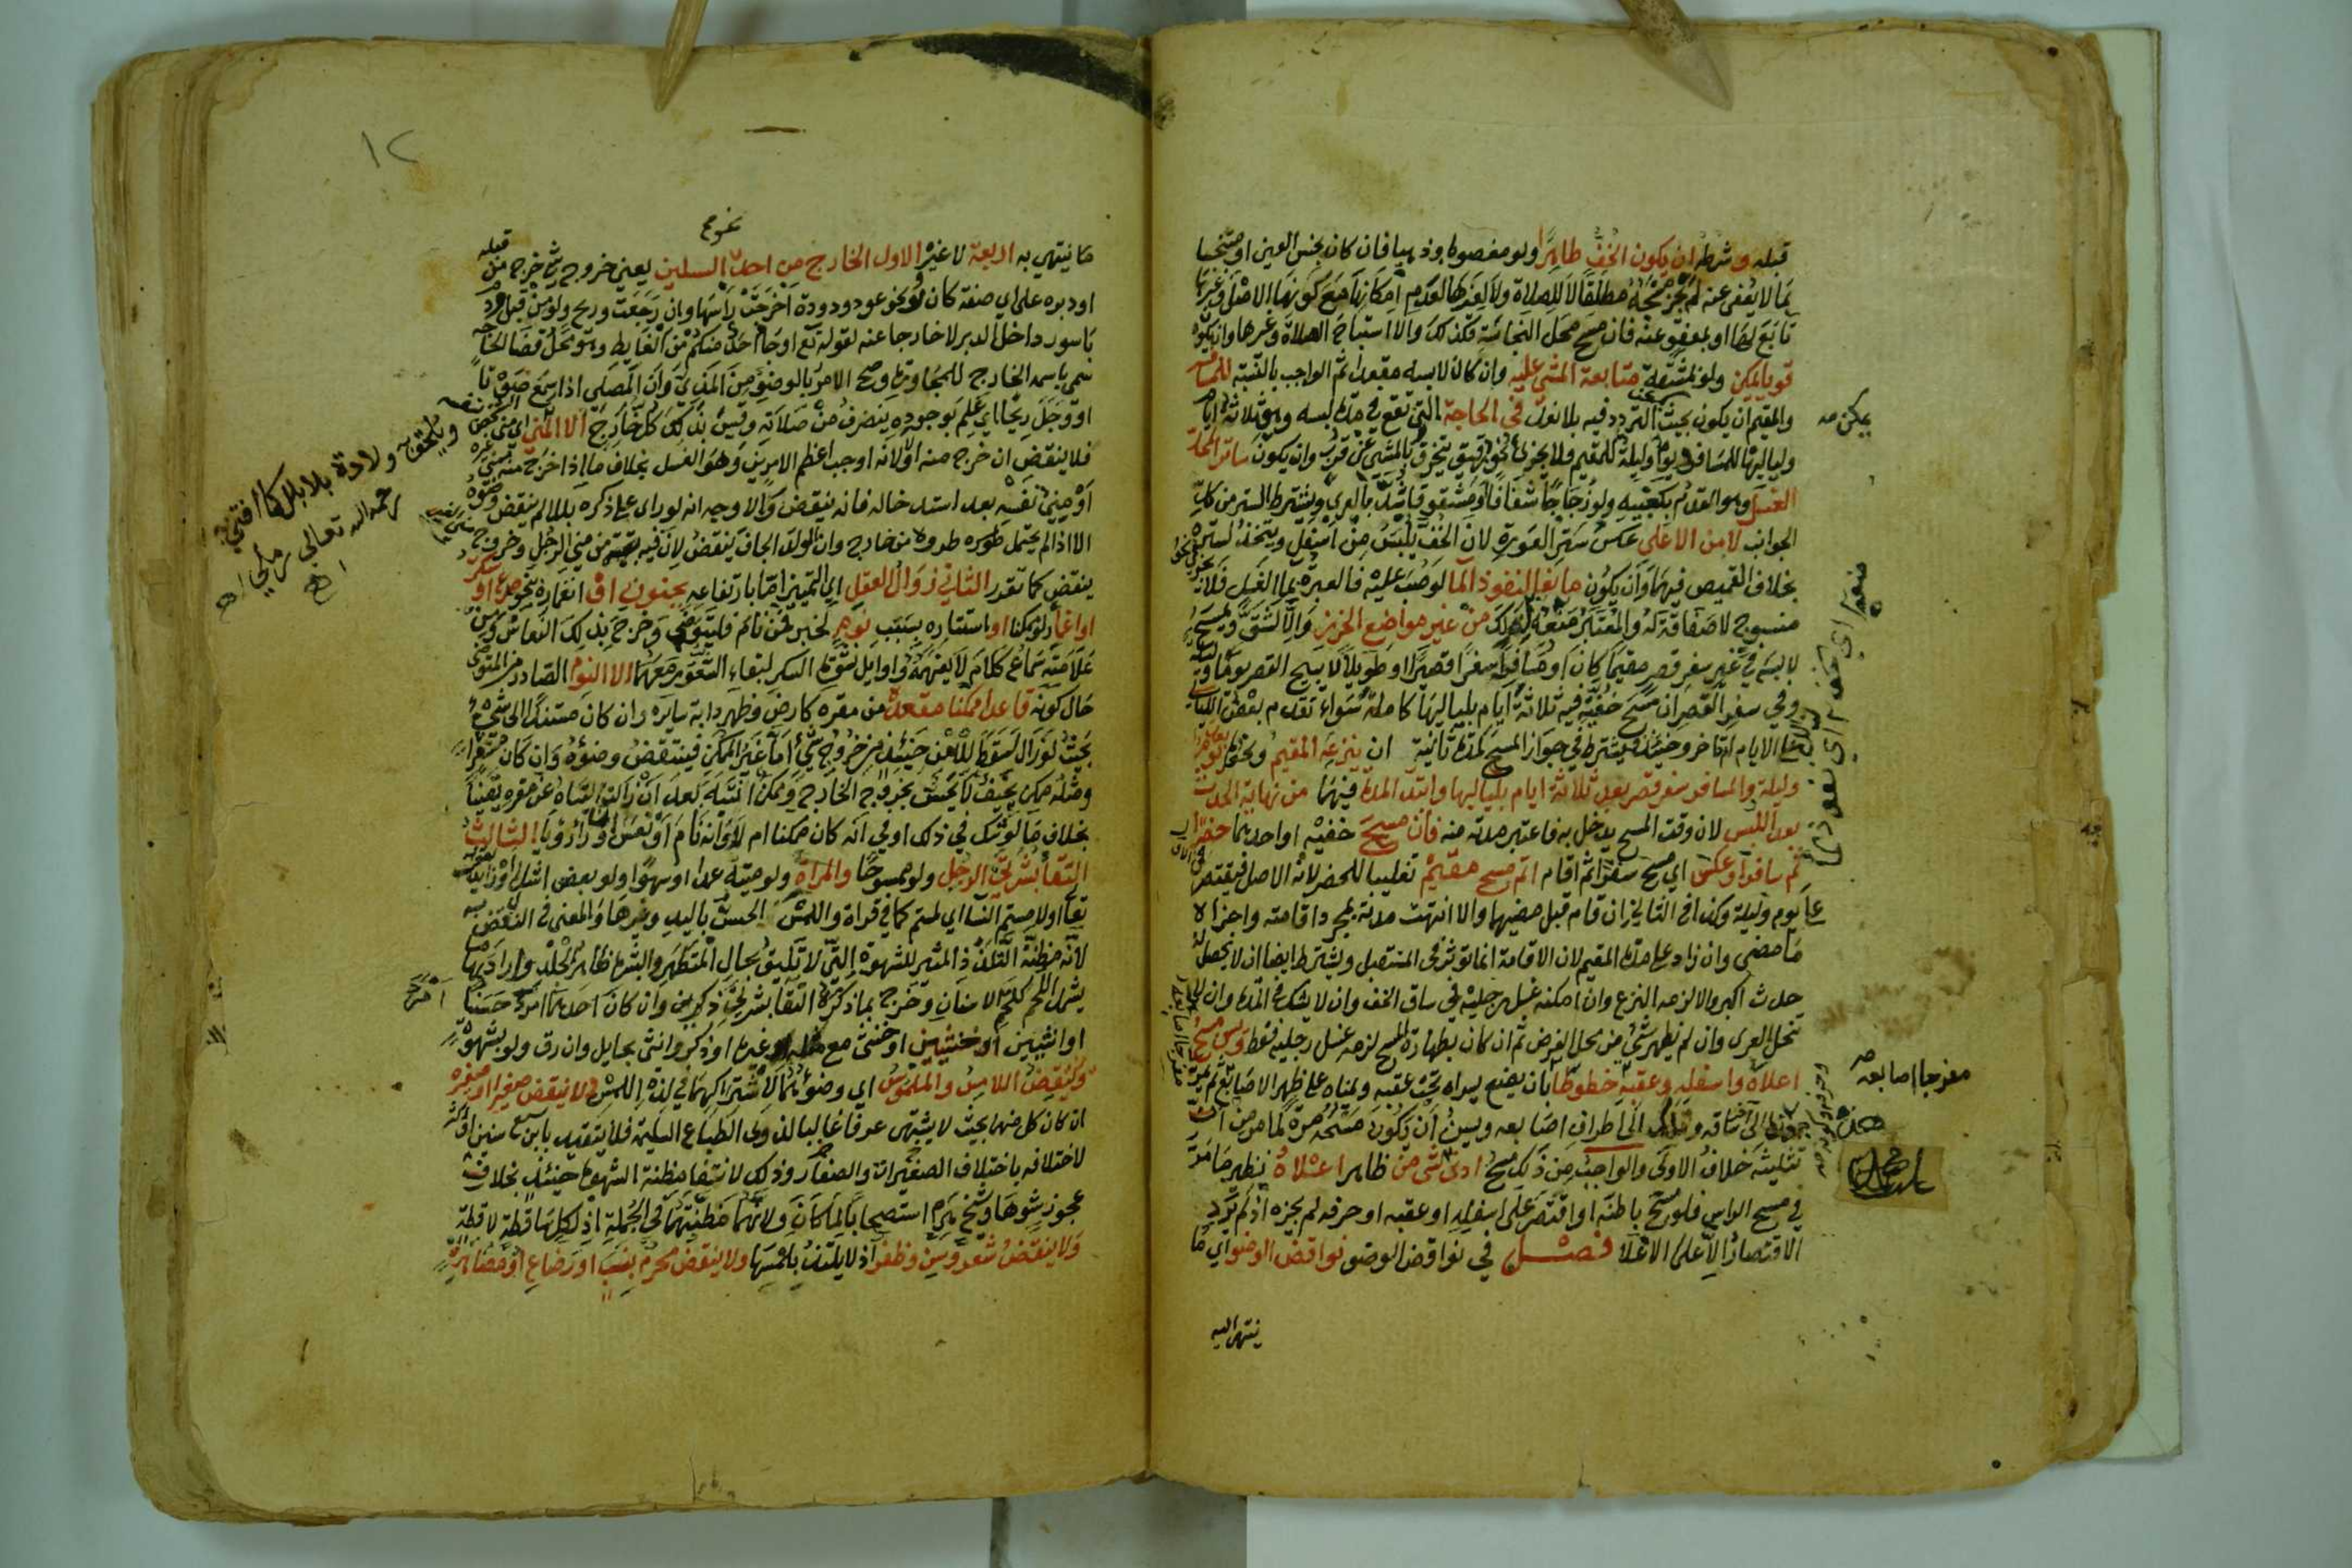 قبله وشرطه ان يكون الخف طاهرا ولو مغصوبا وذهبيا فان كان نجس العين او متنجسا
بما لا يعفى عنه لم يجز مسحه مطلقا لا للصلاة ولا لغيرها لعدم امكانها مع كونها الاصل وغيرها
تابع لها او بمعفو عنه فان مسح محل النجاسة فكذلك والا استباح الصلاة وغيرها وان يكون
قويا يمكن ولو بمشقة متابعة المشي عليه وان كان لابسه مقعدا ثم الواجب بالنسبة للمسافر
والمقيم ان يكون بحيث التردد فيه بلا نعل في الحاجة التي تقع في مدة لبسه وهو ثلاثة ايام
ولياليها للمسافر ويوم وليلة للمقيم فلا يجزئ نحو رقيق يتخرق بالمشي عن قرب وان يكون ساتر المحل
الغسل وهو القدم بكعبيه ولو زجاجا شفافا ومشقوقا شد بالعرى ويشترط الستر من كل
الجوانب لا من الاعلى عكس ستر العورة لان الخف يلبس من اسفل ويتخذ لستره
بخلاف القميص فيهما وان يكون مانعا لنفوذ الما لو صب عليه فالعبرة بما الغسل فلا
منسوج لا صفاقة له والمعتبر منعه لذلك من غير مواضع الخرز والا لشق ويمسح
لابسه في غير سفر قصر مقيما كان او مسافرا سفرا قصيرا او طويلا لا يبيح القصر يوما وليلة
وفي سفر القصر ان مسح خفيه فيه ثلاثة ايام بلياليها كاملة سواء تقدم بعض الليالي
على الايام ام تاخر وحينئذ فيشترط في جواز المسح مدة ثانية ان ينزعه المقيم ونحوه بعد يوم
وليلة والمسافر سفر قصر بعد ثلاثة ايام بلياليها وابتدا المدة فيهما من نهاية الحدث
بعد اللبس لان وقت المسح يدخل به فاعتبر مدته منه فان مسح خفيه او احدهما حضرا
ثم سافر او عكس اي مسح سفرا ثم اقام اتم مسح مقيم تغليبا للحضر لانه الاصل فيقتصر
على يوم وليلة وكذا في الثاني ان قام قبل مضيها والا انتهت مدته بمجرد اقامته واجزاه
ما مضى وان زاد على مدة المقيم لان الاقامة انما تؤثر في المستقبل ويشترط ايضا ان لا يحصل له
حدث اكبر والا لزمه النزع وان امكنه غسل رجليه في ساق الخف وان لا يشك في المدة وان لا
تنحل العرى وان لم يظهر شيئ من محل الفرض ثم ان كان بطهارة المسح لزمه غسل رجليه فقط ويسن مسح
اعلاه واسفله وعقبه خطوطا بان يضع يسراه تحت عقبه ويمناه على ظهر الاصابع ثم يمر
الى ساقه وتلك الى اطراف اصابعه ويسن ان يكون مسحه مرة لما مر من ان
تثليثه خلاف الاولى والواجب من ذلك مسح ادنى شي من ظاهر اعلاه نظير ما مر
في مسح الراس فلو مسح باطنه او اقتصر على اسفله او عقبه او حرفه لم يجزه اذ لم يرد
الاقتصار الا على الاعلا فصل في نواقض الوضو نواقض الوضو اي ما
ينتهي اليه
يمكن صه
مفرجا اصابعه صح
١٢
نحو م
ما ينتهي به اربعة لا غير الاول الخارج من احد السبيلين يعني خروج شي خرج من قبله
او دبره على اي صفة كان ولو نحو عود ودودة اخرجت راسها وان رجعت وريح ولو من قبل ودم
باسور داخل الدبر لا خارجا عنه لقوله تع او جا احد منكم من الغايط وهو محل قضا الحاجة
سمي باسمه الخارج للمجاورة وصح الامر بالوضوء من المذي وان المصلي اذا سمع صوتا
او وجد ريحا اي علم بوجوده ينصرف من صلاته وقيس بذلك كل خارج الا المني اي مني الشخص نفسه
فلا ينقض ان خرج منه اولا لانه اوجب اعظم الامرين وهو الغسل بخلاف ما اذا خرج منه مني غيره
او مني نفسه بعد استدخاله فانه ينقض والاوجه انه لو راى على ذكره بللا لم ينقض وضوءه
الا اذا لم يحتمل طروه من خارج وان الولد الجاف ينقض لان فيه بقية من مني الرجل وخروج مني الغير
ينقض كما تقدر الثاني زوال العقل اي التميز اما بارتفاعه بجنون او انغماره بنحو صرع او سكر
او اغما ولو ممكنا او استتاره بسبب نوم لخبر فمن نام فليتوضي وخرج بذلك النعاس ومن
علامته سماع كلام لا يفهمه واوايل نشوة السكر لبقاء الشعور معهما الا النوم الصادر من المتوضي
حال كونه قاعدا ممكنا مقعده من مقره كارض وظهر دابة سايره وان كان مستندا الى شي
بحيث لو زال لسقط للامن حينئذ من خروج شيء اما غير الممكن فينتقض وضوءه وان كان مستقرا
ومثله ممكن نحيف لا يحس بخروج الخارج وممكن انتبه بعد ان زالت اليتاه عن مقره يقينا
بخلاف ما لو شك في ذلك او في انه كان ممكنا ام لا او انه نام او نعس او راى رؤيا الثالث
التقا بشرتي الرجل ولو ممسوحا والمراة ولو ميتة عمدا او سهوا ولو بعضو اشل او زايد لقوله
تعا او لامستم النسا اي لمستم كما في قراة واللمس الجس باليد وغيرها والمعنى في النقض به
لانه مظنة التلذذ المثير للشهوة التي لا تليق بحال المتطهر والبشرة ظاهر الجلد واراد بها ما
يشمل اللحم كلحم الاسنان وخرج بما ذكره التقا بشرتي ذكرين وان كان احدهما امرد حسنا
او انثيين او خنثيين او خنثى مع غيره او ذكر وانثى بحايل وان رق ولو بشهوة
وينقض اللامس والملموس اي وضوئهما لاشتراكهما في لذة اللمس ولا ينقض صغير او صغيرة
ان كان كل منهما بحيث لا يشتهى عرفا غالبا لذوي الطباع السليمة فلا يتقيد بابن سبع سنين او اكثر
لاختلافه باختلاف الصغيرات والصغار وذلك لانتفا مظنة الشهوة حينئذ بخلاف
عجوز شوها وشيخ هرم استصحابا لما كان ولانهما مظنتهما في الجملة اذ لكل ساقطة لاقطة
ولا ينقض شعر وسن وظفر اذ لا يلتذ بلمسها ولا ينقض محرم بنسب او رضاع او مصاهرة
ويلحق به ولادة بلا بلل كما افتى به
رحمه الله تعالى رملي اه